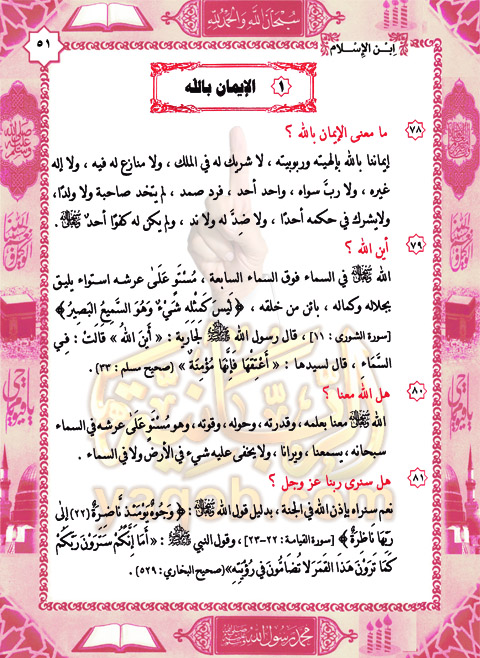 سُبْحَانَ اللَّهِ وَالْحَمْدُ لِلَّهِ
ابْن الإِسْلَام
٥١
١ الإيمان بالله
٧٨ ما معنى الإيمان بالله ؟
إيماننا بالله بإلهيته وربوبيته ، لا شريك له في الملك ، ولا منازع له فيه ، ولا إله
غيره ، ولا ربَّ سواه ، واحد أحد ، فرد صمد ، لم يتخد صاحبة ولا ولدًا،
ولايشرك في حكمه أحدًا ، ولا ضِدَّ له ولا ند ، ولم يكن له كفوًا أحدٌ ﷻ .
٧٩ أين الله ؟
الله ﷻ في السماء فوق السماء السابعة ، مُسْتَوٍ عَلَىٰ عرشه استواء يليق
بجلاله وكماله ، بائن من خلقه ، ﴿ لَيْسَ كَمِثْلِهِ شَيْءٌ وَهُوَ السَّمِيعُ البَصِيرُ ﴾
[سورة الشورى : ١١] ، قال رسول الله ﷺ لجارية : « أَيْنَ اللهُ » قَالَتْ : فِي
السَّمَاءِ ، قال لسيدها : « أَعْتِقْهَا فَإِنَّهَا مُؤْمِنَةٌ » (صحيح مسلم : ٣٣) .
٨٠ هل الله معنا ؟
الله ﷻ معنا بعلمه ، وقدرته ، وحوله ، وقوته ، وهو مُسْتَوٍ عَلَىٰ عرشه في السماء
سبحانه ، يسمعنا ، ويرانا ، ولا يخفى عليه شيء في الأرض ولا في السماء .
٨١ هل سنرى ربنا عز وجل ؟
نعم سنراه بإذن الله في الجنة ، بدليل قول الله ﷻ : ﴿ وُجُوهٌ يَوْمَئِذٍ نَّاضِرَةٌ (٢٢) إِلَى
رَبِّهَا نَاظِرَةٌ ﴾ [سورة القيامة : ٢٢-٢٣] ، وقول النبي ﷺ : « أَمَا إِنَّكُمْ سَتَرَوْنَ رَبَّكُمْ
كَمَا تَرَوْنَ هَذَا القَمَرَ لَا تُضَامُّونَ فِي رُؤْيَتِهِ »(صحيح البخاري : ٥٢٩) .
yaqob.com
محمد رسول الله ﷺ